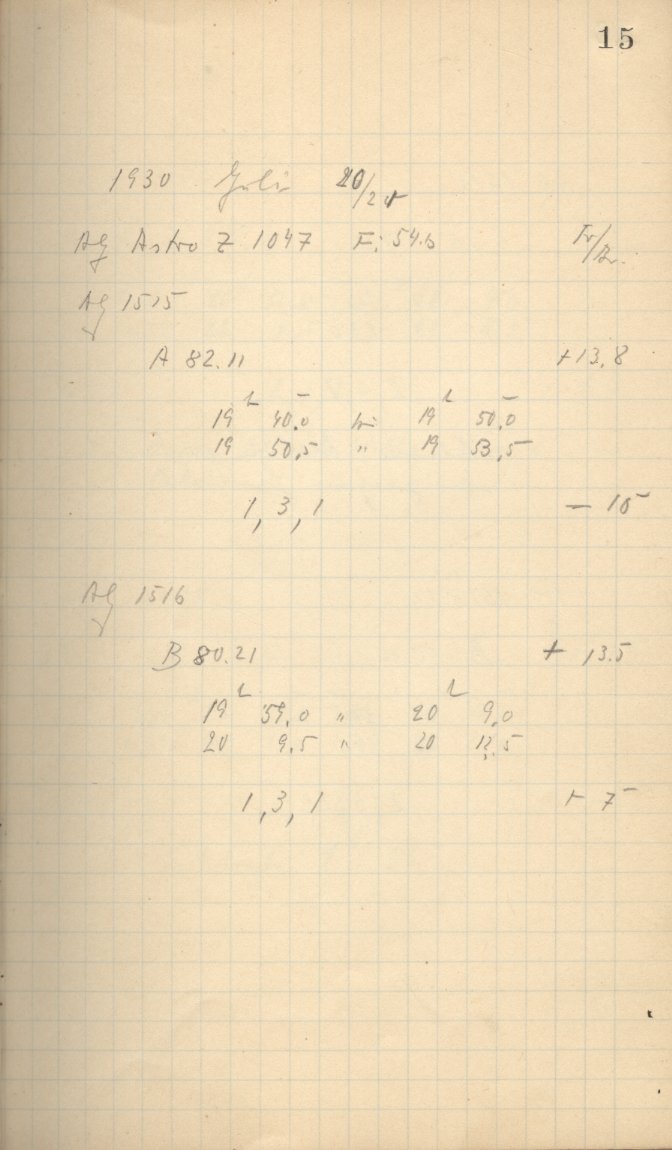 15
1930 Juli 20/21
AG Astro Z 1047 F: 54.6 Fr/Br.
AG 1515
A 82.11 +13.8
19 h 40,0 bis 19 h 50,0
19 50,5 " 19 53,5
1, 3, 1 — 15
AG 1516
B 80.21 + 13.5
19 h 59,0 " 20 h 9,0
20 9.5 " 20 12,5
1, 3, 1 + 7